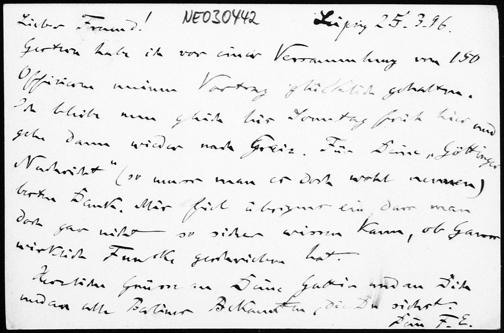 Lieber Freund!
NE030442
Leipzig 25.3.96.
Gestern habe ich vor einer Versammlung von 150
Offizieren meinen Vortrag glücklich gehalten.
Ich bleibe nun gleich bis Sonntag früh hier und
gehe dann wieder nach Greiz. Für Deine „Göttinger
Nachricht“ (so muss man es doch wohl nennen)
besten Dank. Mir fiel übrigens ein, dass man
doch gar nicht so sicher wissen kann, ob
wirklich geschrieben hat.
Herzliche Grüsse an Deine Gattin und an Dich
und an alle Berliner Bekannten die Du siehst.
Dein F. E.